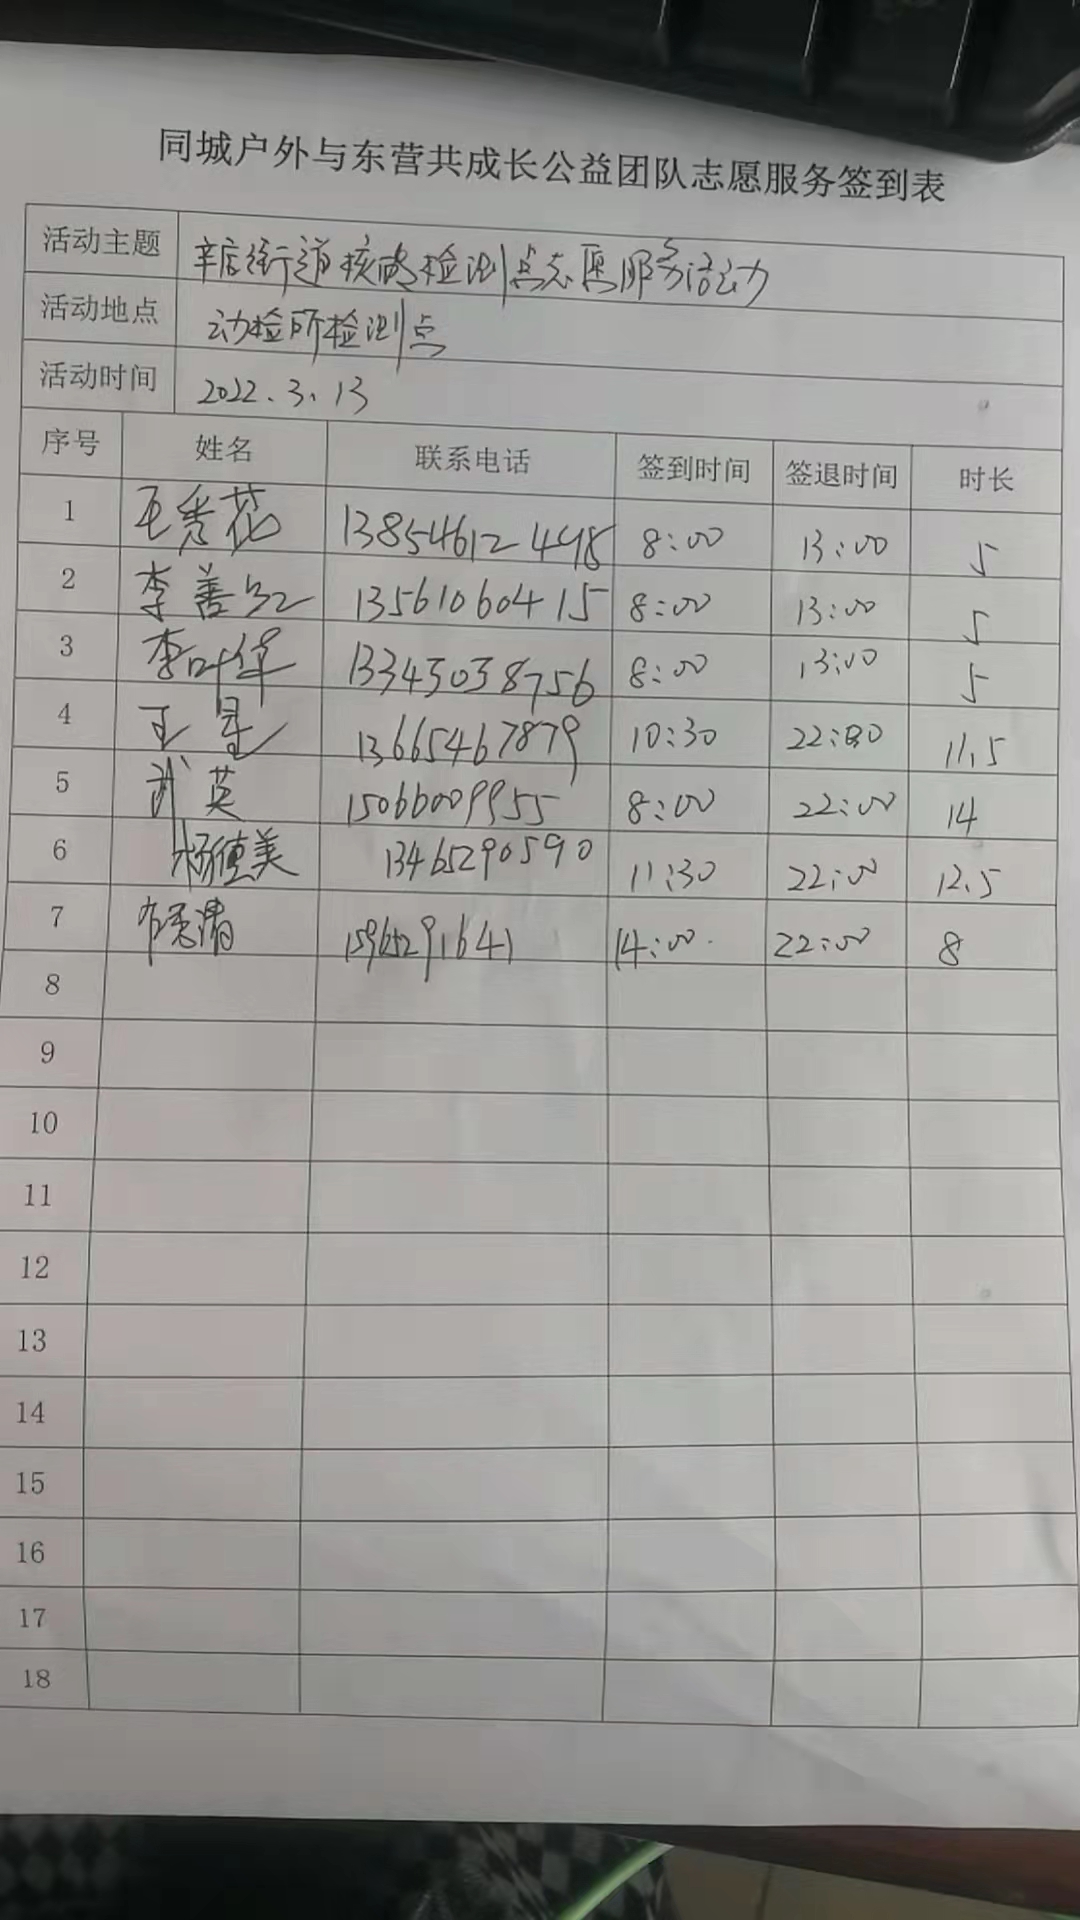 同城户外与东营共成长公益团队志愿服务签到表
活动主题 辛店街道核酸检测点志愿服务活动
活动地点 动检所检测点
活动时间 2022.3.13
序号 姓名 联系电话 签到时间 签退时间 时长
1 毛秀花 13854612448 8:00 13:00 5
2 李善红 13561060415 8:00 13:00 5
3 李叶华 13345038756 8:00 13:00 5
4 王星 13665467879 10:30 22:00 11.5
5 武英 15066009955 8:00 22:00 14
6 杨德美 13465290590 11:30 22:00 12.5
7 15965291641 14:00 22:00 8
8
9
10
11
12
13
14
15
16
17
18